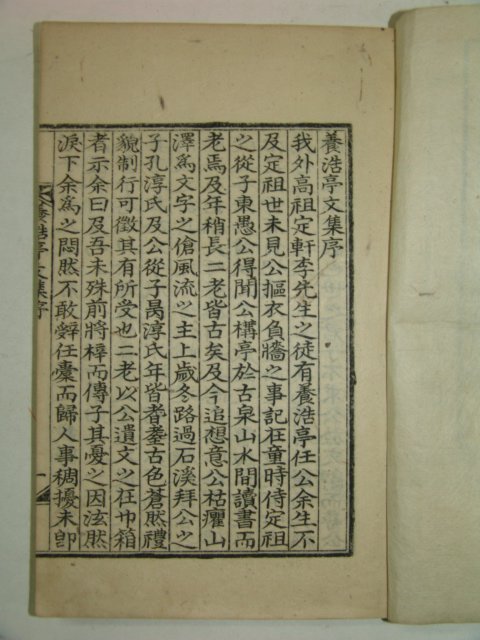 養浩亭文集序
我外高祖定軒李先生之徒有養浩亭任公余生不
及定祖世未見公摳衣負牆之事記在童時侍定祖
之從子東愚公得聞公構亭於古泉山水間讀書而
老焉及年稍長二老皆古矣及今追想意公枯癯山
澤爲文字之傖風流之主上歲冬路過石溪拜公之
子孔淳氏及公從子昺淳氏年皆耆耋古色蒼然禮
貌制行可徵其有所受也二老以公遺文之在巾箱
者示余曰及吾未殊前將梓而傳子其憂之因泫然
淚下余爲之悶然不敢辭任囊而歸人事稠擾未卽
養浩亭文集序
一